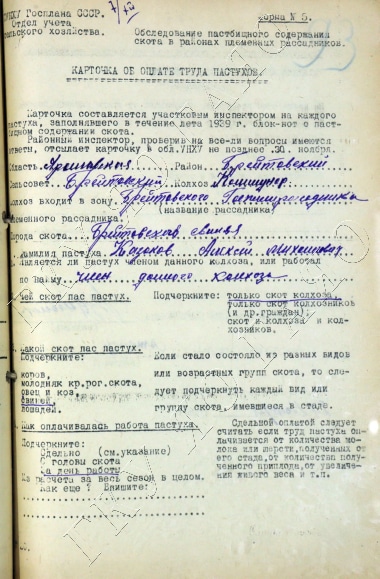 ЦУНХУ Госплана СССР.
Отдел учета
сельского хозяйства.
Форма № 5.
Обследование пастбищного содержания
скота в районах племенных рассадников.
КАРТОЧКА ОБ ОПЛАТЕ ТРУДА ПАСТУХОВ.
Карточка составляется участковым инспектором на каждого
пастуха, заполнявшего в течение лета 1939 г. блок-нот о паст-
бищном содержании скота.
Районный инспектор, проверив на все-ли вопросы имеются
ответы, отсылает карточку в обл.УНХУ не позднее 30. ноября.
Область Ярославская Район Брейтовский
Сельсовет Брейтовский Колхоз
Колхоз входит в зону Брейтовского Госплемрассадника
(название рассадника)
племенного рассадника
Порода скота Брейтовская свинья
Фамилия пастуха
Является ли пастух членом данного колхоза, или работал
по найму член данного колхоза
Чей скот пас пастух. Подчеркните: только скот колхоза,
только скот колхозников
(и др.граждан),
скот и колхоза и кол-
хозников.
Какой скот пас пастух.
Подчеркните:
коров,
молодняк кр.рог.скота,
овец и коз,
свиней,
лошадей.
Если стадо состояло из разных видов
или возрастных групп скота, то сле-
дует подчеркнуть каждый вид или
группу скота, имевшиеся в стаде.
Как оплачивалась работа пастуха.
Подчеркните:
Сдельно (см.указание)
С головы скота
За день работы
Из расчета за весь сезон в целом.
Как еще? Впишите:
Сдельной оплатой следует
считать если труд пастуха оп-
лачивается от количества мо-
лока или шерсти, полученных от
его стада, от количества полу-
ченного приплода, от увеличе-
ния живого веса и т.п.